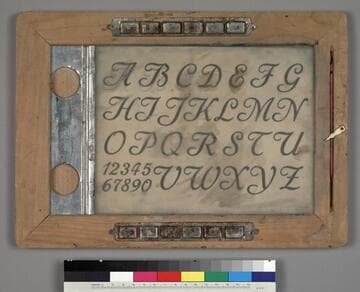 A B C D E F G
H I J K L M N
O P Q R S T U
12345
67890 V W X Y Z